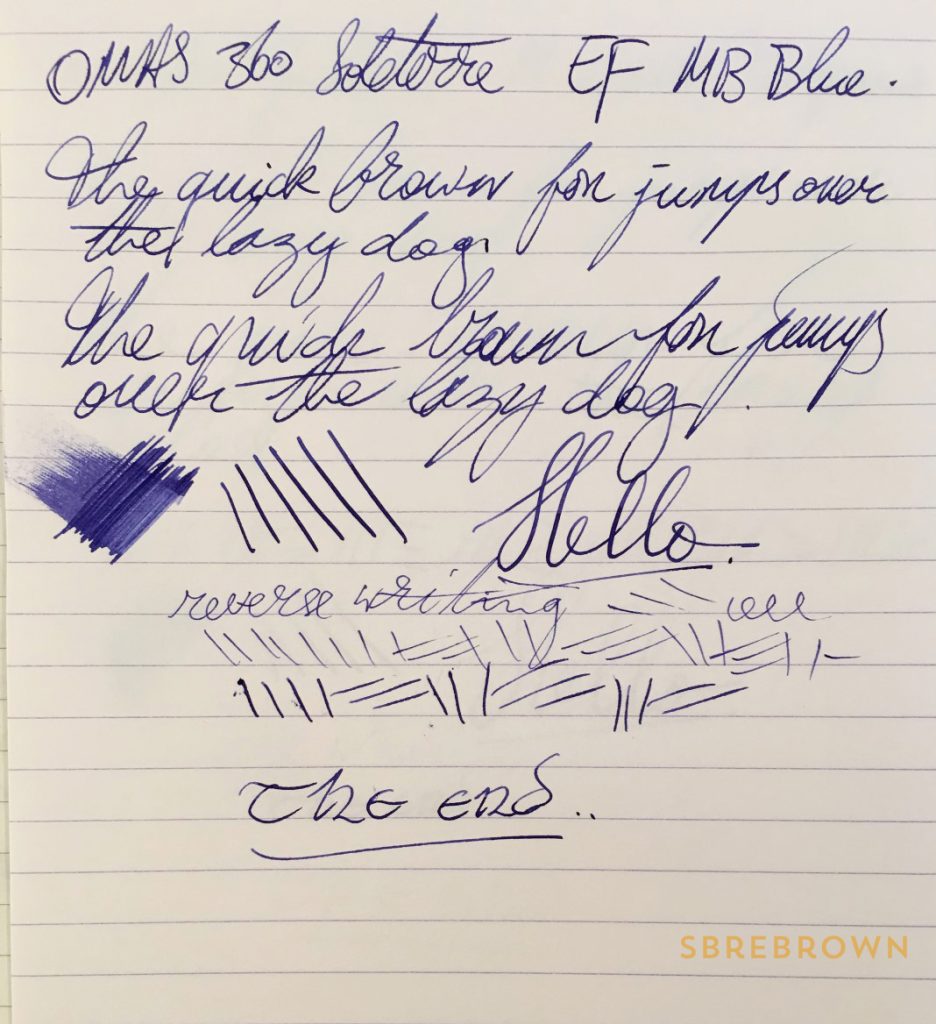 OMAS 360 Soloterre EF MB Blue.
The quick brown fox jumps over
the lazy dog.
The quick brown fox jumps
over the lazy dog.
Hello.
reverse writing
The end..
SBREBROWN